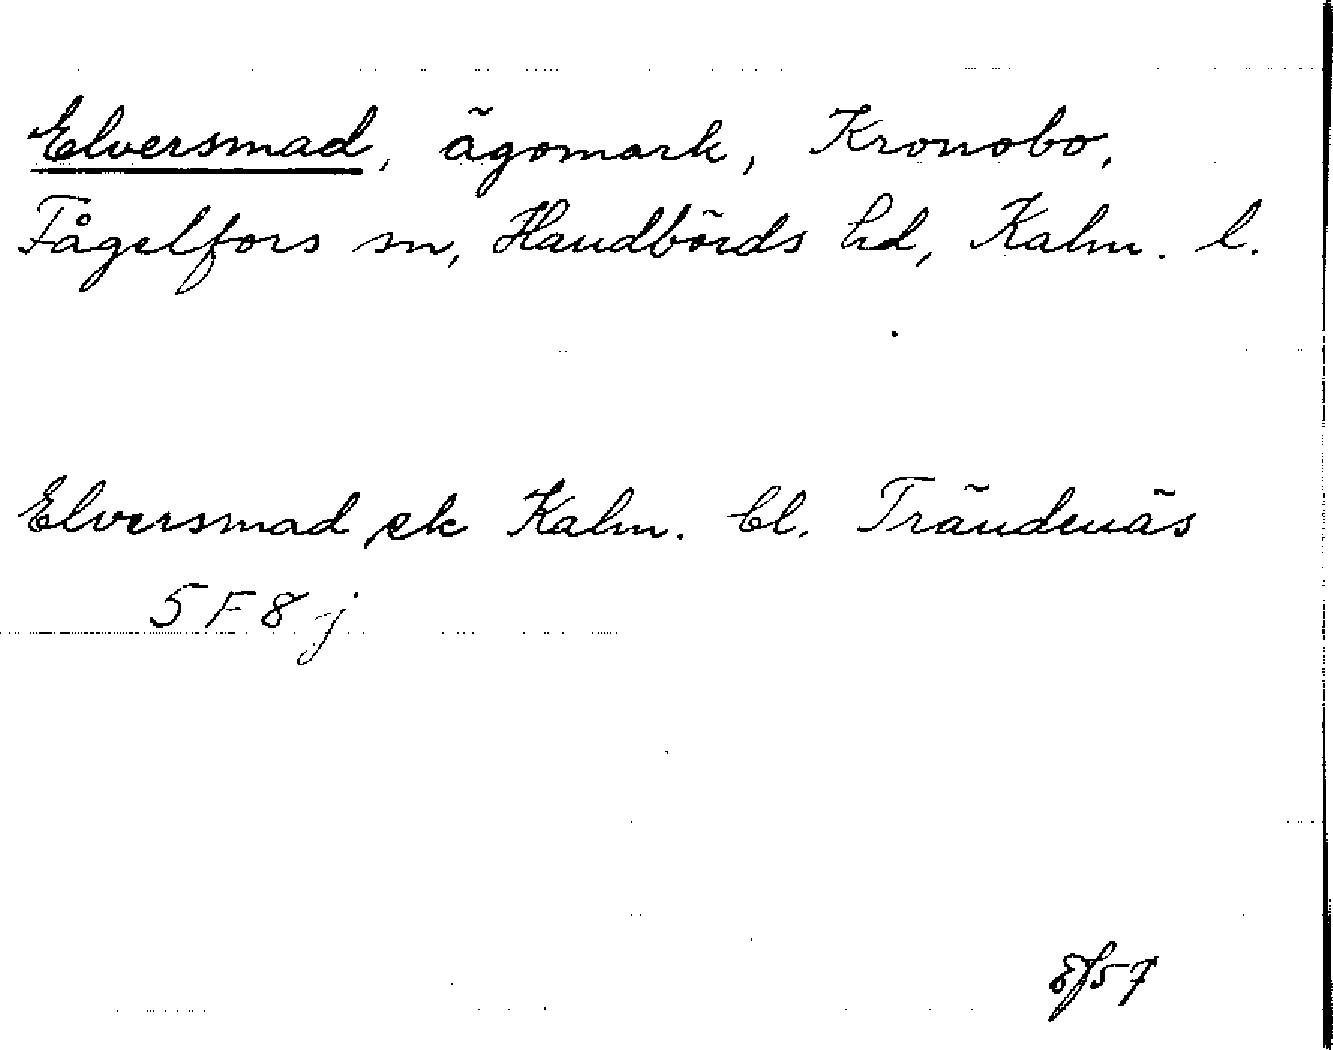 Elversmad, ägomark, Kronobo,
Fågelfors sn, Handbörds hd, Kalm. l.
Elversmad ek Kalm. bl. Trändenäs
5 F 8 j